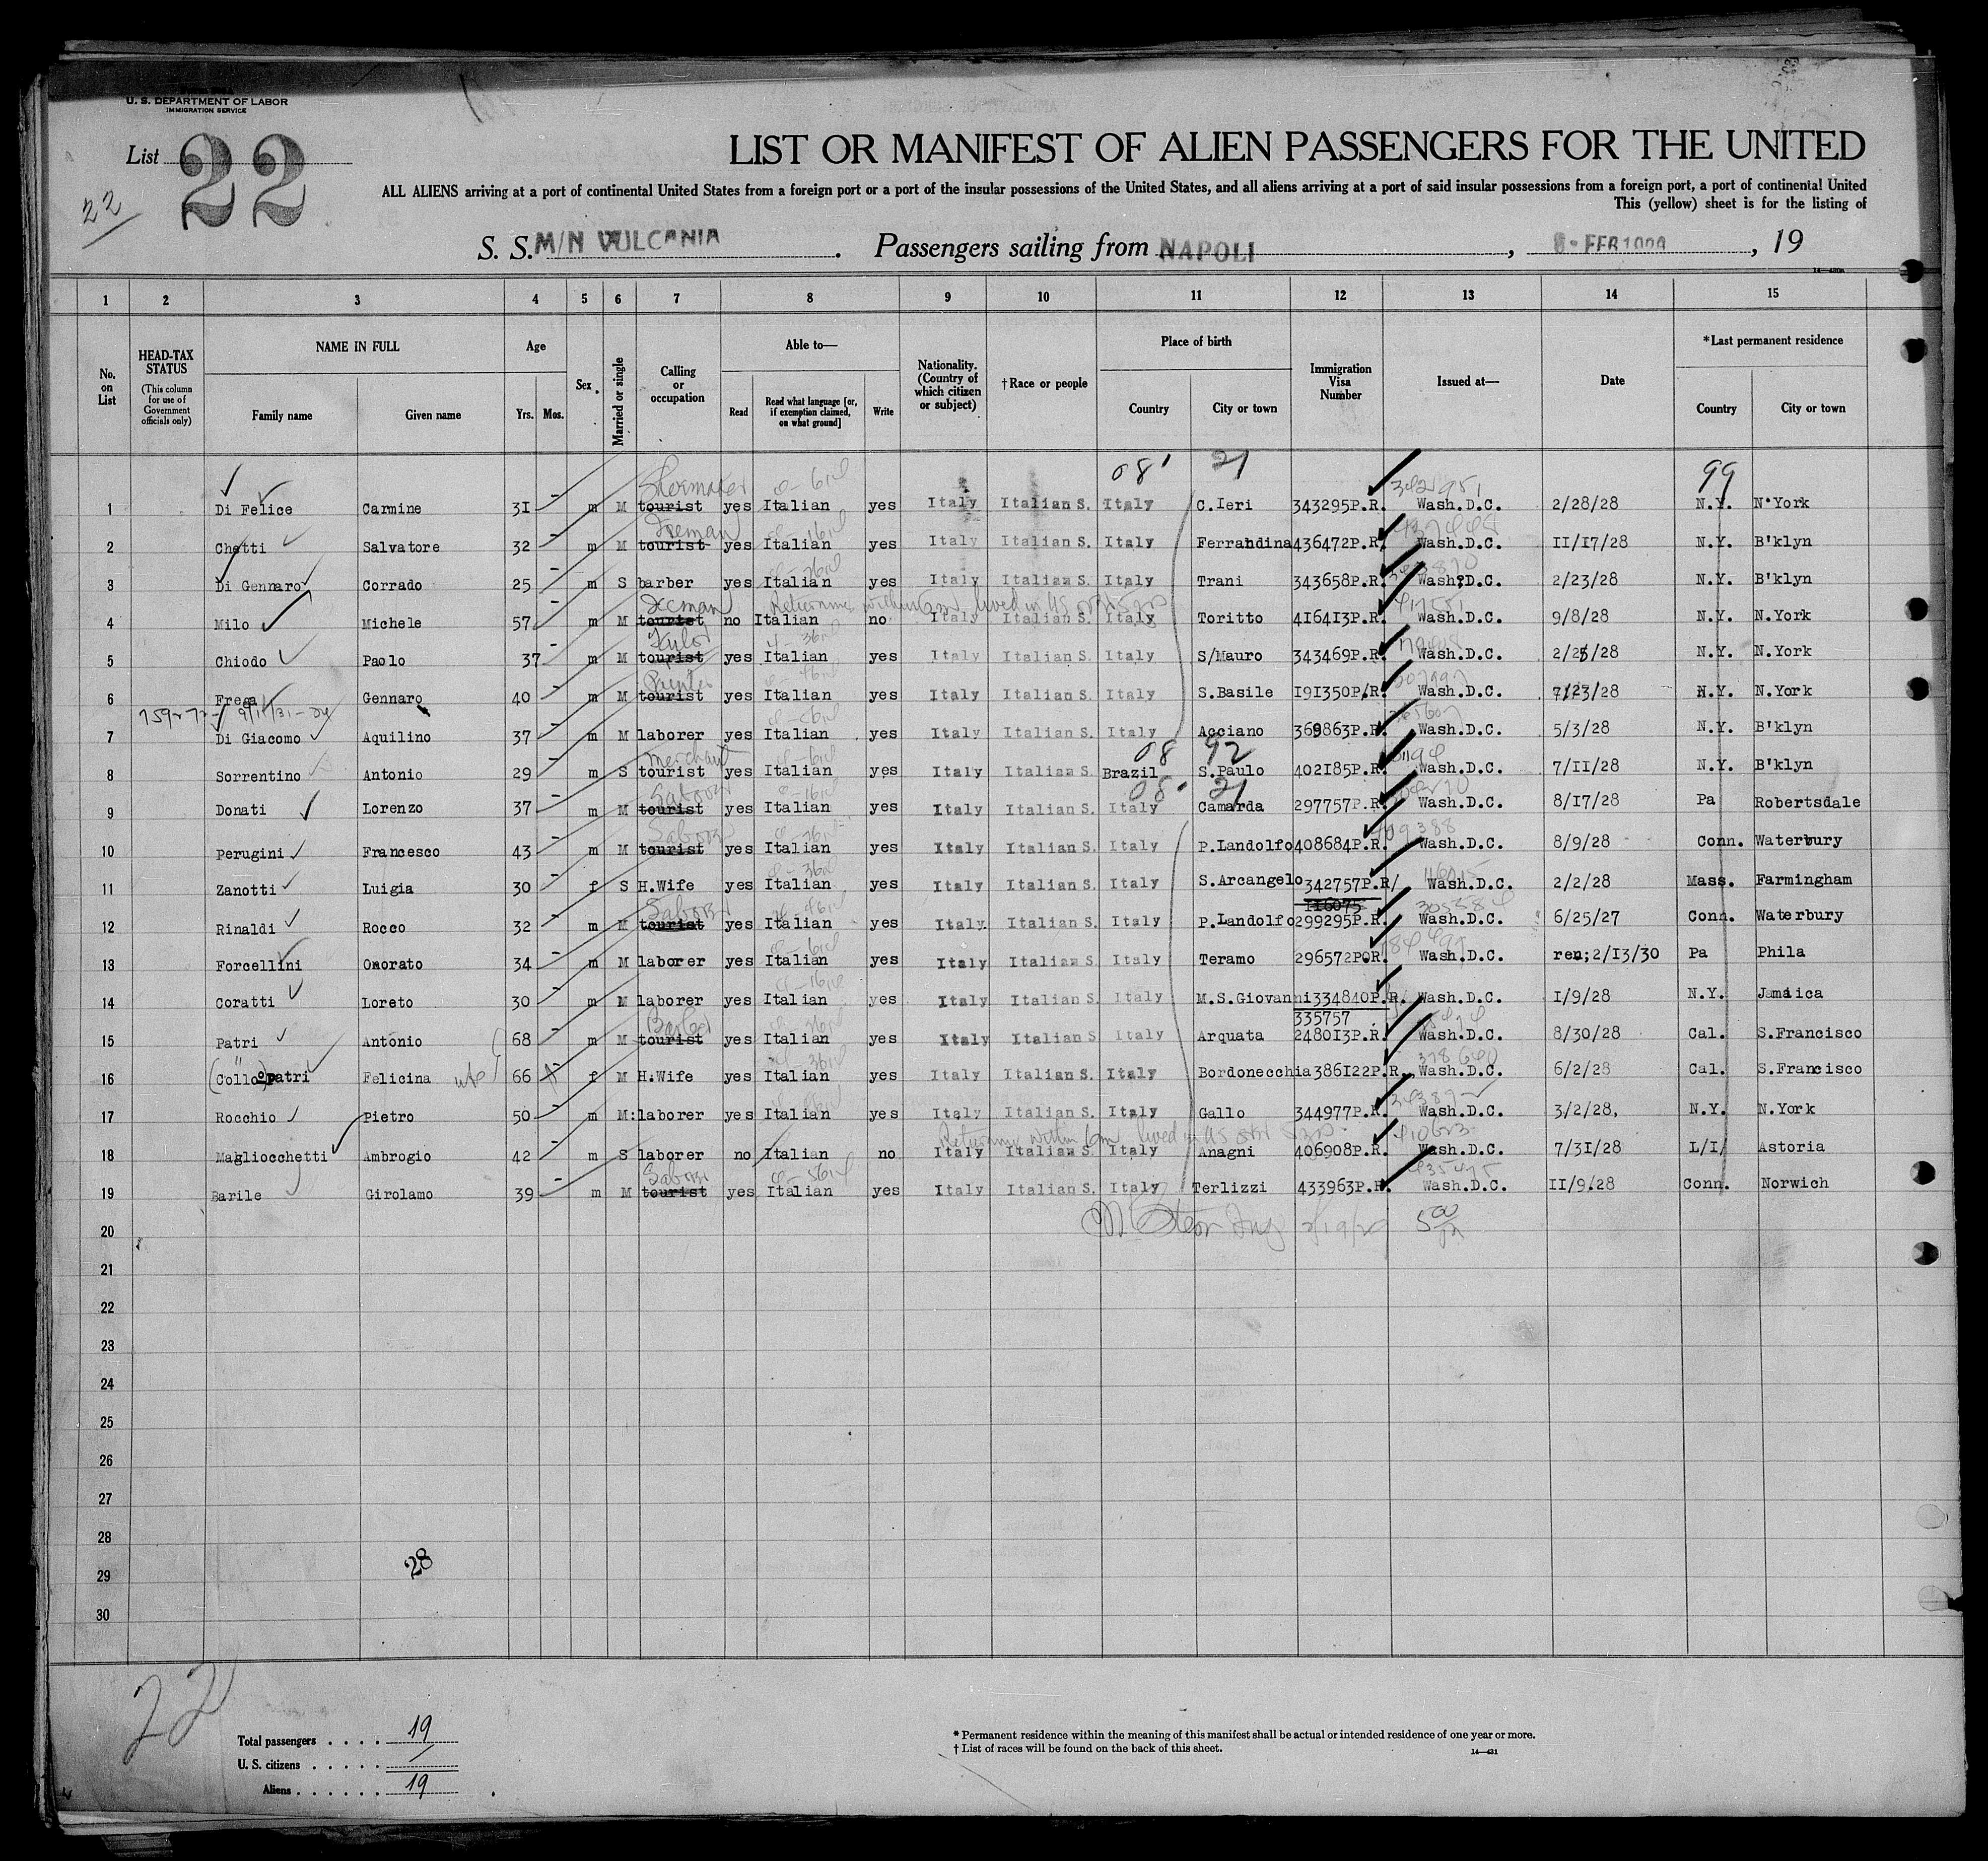 U. S. DEPARTMENT OF LABOR
IMMIGRATION SERVICE
List 22
22
LIST OR MANIFEST OF ALIEN PASSENGERS FOR THE UNITED
ALL ALIENS arriving at a port of continental United States from a foreign port or a port of the insular possessions of the United States, and all aliens arriving at a port of said insular possessions from a foreign port, a port of continental United
This (yellow) sheet is for the listing of
S. S. M/N VULCANIA. Passengers sailing from NAPOLI, FEB, 19
1 2 3 4 5 6 7 8 9 10 11 12 13 14 15
No. on List
HEAD-TAX STATUS (This column for use of Government officials only)
NAME IN FULL Family name Given name
Age Yrs. Mos.
Sex
Married or single
Calling or occupation
Able to— Read Read what language [or, if exemption claimed, on what ground] Write
Nationality. (Country of which citizen or subject)
† Race or people
Place of birth Country City or town
Immigration Visa Number
Issued at—
Date
*Last permanent residence Country City or town
08 21 99
Shoemaker
1 Di Felice Carmine 31 m M tourist yes Italian yes Italy Italian S. Italy C.Ieri 343295P.R. Wash.D.C. 2/28/28 N.Y. N.York
Iceman
2 Chetti Salvatore 32 m M tourist yes Italian yes Italy Italian S. Italy Ferrandina 436472P.R. Wash.D.C. 11/17/28 N.Y. B'klyn
3 Di Gennaro Corrado 25 m S barber yes Italian yes Italy Italian S. Italy Trani 343658P.R. Wash?D.C. 2/23/28 N.Y. B'klyn
Iceman Returning within 6m lived in US
4 Milo Michele 57 m M tourist no Italian no Italy Italian S. Italy Toritto 416413P.R. Wash.D.C. 9/8/28 N.Y. N.York
5 Chiodo Paolo 37 m M tourist yes Italian yes Italy Italian S. Italy S/Mauro 343469P.R. Wash.D.C. 2/25/28 N.Y. N.York
6 Frega Gennaro 40 m M tourist yes Italian yes Italy Italian S. Italy S.Basile 191350P/R. Wash.D.C. 7/23/28 N.Y. N.York
7 Di Giacomo Aquilino 37 m M laborer yes Italian yes Italy Italian S. Italy Acciano 369863P.R. Wash.D.C. 5/3/28 N.Y. B'klyn
merchant 08 92
8 Sorrentino Antonio 29 m S tourist yes Italian yes Italy Italian S. Brazil S.Paulo 402185P.R. Wash.D.C. 7/11/28 N.Y. B'klyn
Laborer 08 21
9 Donati Lorenzo 37 m M tourist yes Italian yes Italy Italian S. Italy Camarda 297757P.R. Wash.D.C. 8/17/28 Pa Robertsdale
Laborer 409388
10 Perugini Francesco 43 m M tourist yes Italian yes Italy Italian S. Italy P.Landolfo 408684P.R. Wash.D.C. 8/9/28 Conn. Waterbury
11 Zanotti Luigia 30 f S H.Wife yes Italian yes Italy Italian S. Italy S.Arcangelo 342757P.R/ Wash.D.C. 2/2/28 Mass. Farmingham
Laborer 116075
12 Rinaldi Rocco 32 m M tourist yes Italian yes Italy Italian S. Italy P.Landolfo 299295P.R. Wash.D.C. 6/25/27 Conn. Waterbury
13 Forcellini Onorato 34 m M laborer yes Italian yes Italy Italian S. Italy Teramo 296572P.R. Wash.D.C. ren;2/13/30 Pa Phila
14 Coratti Loreto 30 m M laborer yes Italian yes Italy Italian S. Italy M.S.Giovanni 334840P.R. Wash.D.C. 1/9/28 N.Y. Jamaica
Barber 335757
15 Patri Antonio 68 m M tourist yes Italian yes Italy Italian S Italy Arquata 248013P.R. Wash.D.C. 8/30/28 Cal. S.Francisco
16 (Collo) Patri Felicina wife 66 f M H.Wife yes Italian yes Italy Italian S. Italy Bordonecchia 386122P.R. Wash.D.C. 6/2/28 Cal. S.Francisco
17 Rocchio Pietro 50 m M: laborer yes Italian yes Italy Italian S. Italy Gallo 344977P.R. Wash.D.C. 3/2/28, N.Y. N.York
Returning within 6m lived in US
18 Magliocchetti Ambrogio 42 m S laborer no Italian no Italy Italian S. Italy Anagni 406908P.R. Wash.D.C. 7/31/28 L/I/ Astoria
Laborer
19 Barile Girolamo 39 m M tourist yes Italian yes Italy Italian S. Italy Terlizzi 433963P.R. Wash.D.C. 11/9.28 Conn. Norwich
20
21
22
23
24
25
26
27
28
28
29
30
22
Total passengers . . . . 19
U. S. citizens . . . . . /
Aliens . . . . . . 19
* Permanent residence within the meaning of this manifest shall be actual or intended residence of one year or more.
† List of races will be found on the back of this sheet.
14—431